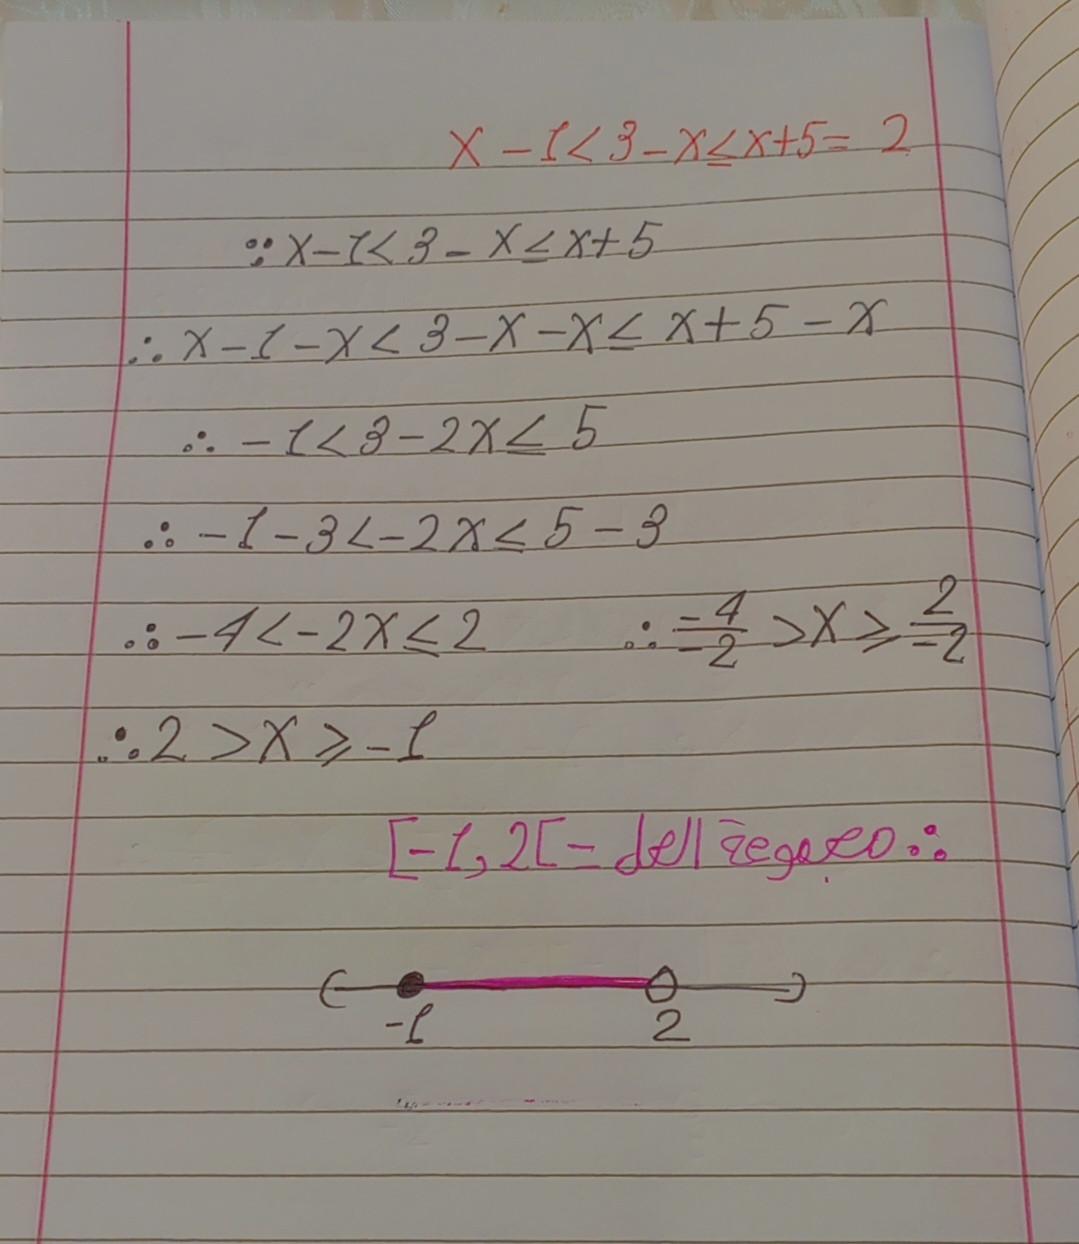 x - 1 < 3 - x ≤ x + 5 = 2
∵ x - 1 < 3 - x ≤ x + 5
∴ x - 1 - x < 3 - x - x ≤ x + 5 - x
∴ -1 < 3 - 2x ≤ 5
∴ -1 - 3 < -2x ≤ 5 - 3
∴ -4 < -2x ≤ 2 ∴ -4/-2 > x ≥ 2/-2
∴ 2 > x ≥ -1
[-1, 2[ -
-1 2